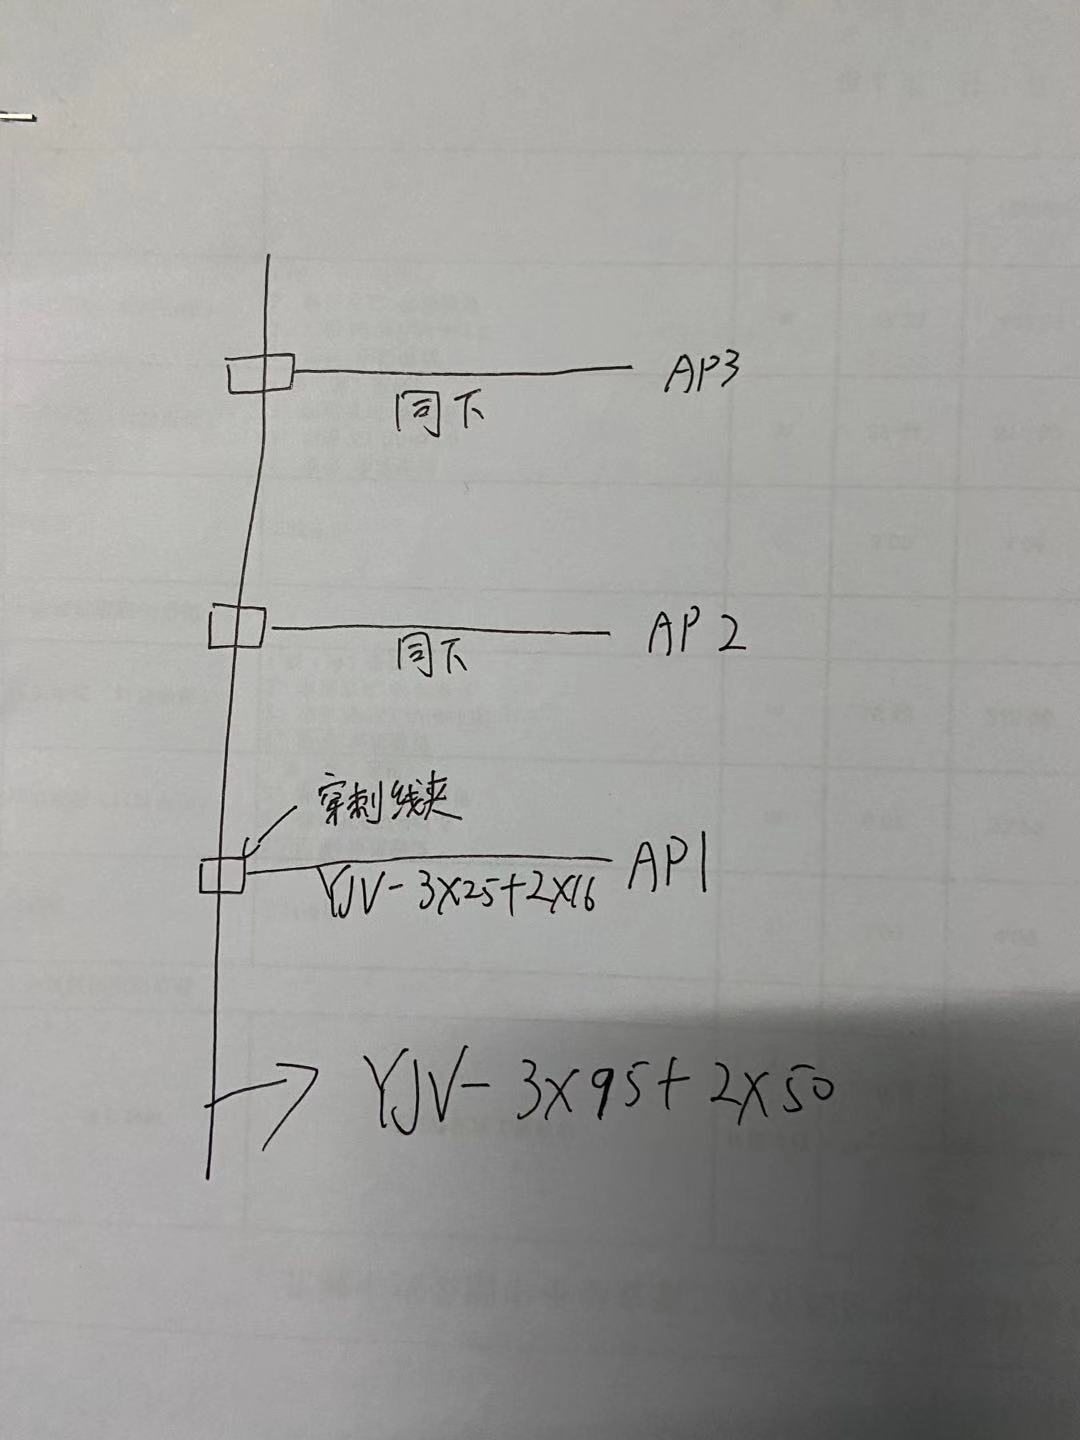 AP3
同下
AP2
同下
穿刺线夹
AP1
YJV-3X25+2X16
YJV-3X95+2X50